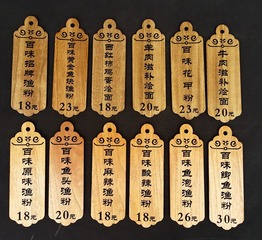 百味招牌渔粉
18元
百味黄金鱼块渔粉
23元
西红柿鸡蛋烩面
18元
羊肉滋补烩面
20元
百味花甲粉
23元
牛肉滋补烩面
20元
百味原味渔粉
18元
百味鱼头渔粉
20元
百味麻辣渔粉
18元
百味酸辣渔粉
18元
百味鱼泡渔粉
26元
百味鲫鱼渔粉
30元